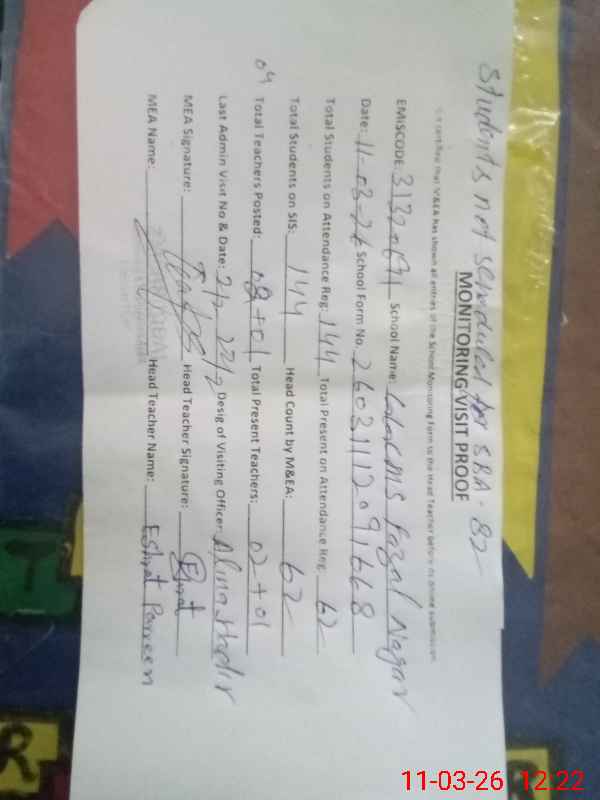 Students not scheduled for SBA - 82
MONITORING VISIT PROOF
It is certified that M&EA has shown all entries of the School Monitoring Form to the Head Teacher before its online submission
EMISCODE: School Name: Fazal Nagar
Date: 11-03-26 School Form No. 26031112091668
Total Students on Attendance Reg: 144 Total Present on Attendance Reg: 62
Total Students on SIS: 144 Head Count by M&EA: 62
04 Total Teachers Posted: +01 Total Present Teachers: 02+01
Last Admin Visit No & Date: Desig of Visiting Officer:
MEA Signature: Head Teacher Signature:
MEA Name: Head Teacher Name: Eshrat Parveen
T
R
R
11-03-26 12:22